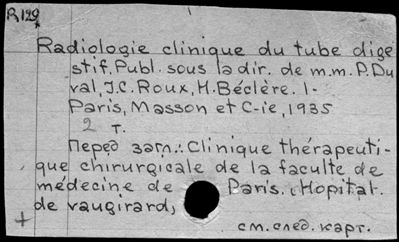 R129
Radiologie clinique du tube dige
stif. Publ. sous la dir. de m.m. P. Du
val, J.C. Roux, H. Béclère. 1-
Paris, Masson et C-ie, 1935
2 т.
Перед загл.: Clinique thérapeuti-
que chirurgicale de la faculte de
médecine de Paris. Hopital
de vaugirard,
+
см. след. карт.